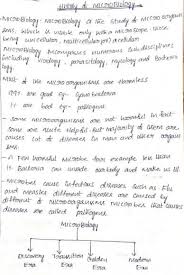 History of Microbiology
MICROBIOLOGY : Microbiology is the study of microorganisms
which is visible only with a microscope
being unicellular, multicellular, acellular.
Microbiology incorporates numerous sub-disciplines
including virology, parasitology, mycology and Bacteriology.
of the microorganisms are harmless
99% are good eg - Cyanobacteria
1% are bad eg - pathogens
- Some microorganisms are not harmful in fact
some are quite helpful but majority of them are
causes of diseases in man and other organisms.
- A few harmful microbes for example less than
1% bacteria can invade body and make us ill.
- Microbes cause infectious diseases such as Flu
and measles different diseases are caused by
different microorganisms microbes that causes
diseases are called pathogens.
Microbiology
Discovery Era
Transition Era
Golden Era
Modern Era